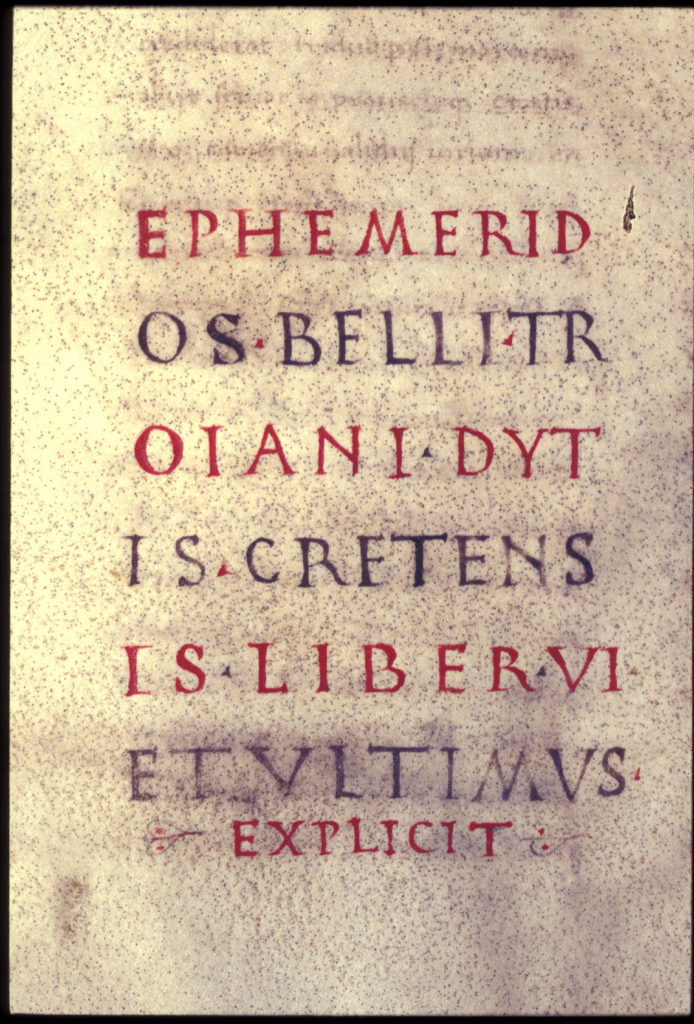 EPHEMERID
OS·BELLI·TR
OIANI·DYT
IS·CRETENS
IS·LIBER·VI·
ET·VLTIMVS·
EXPLICIT